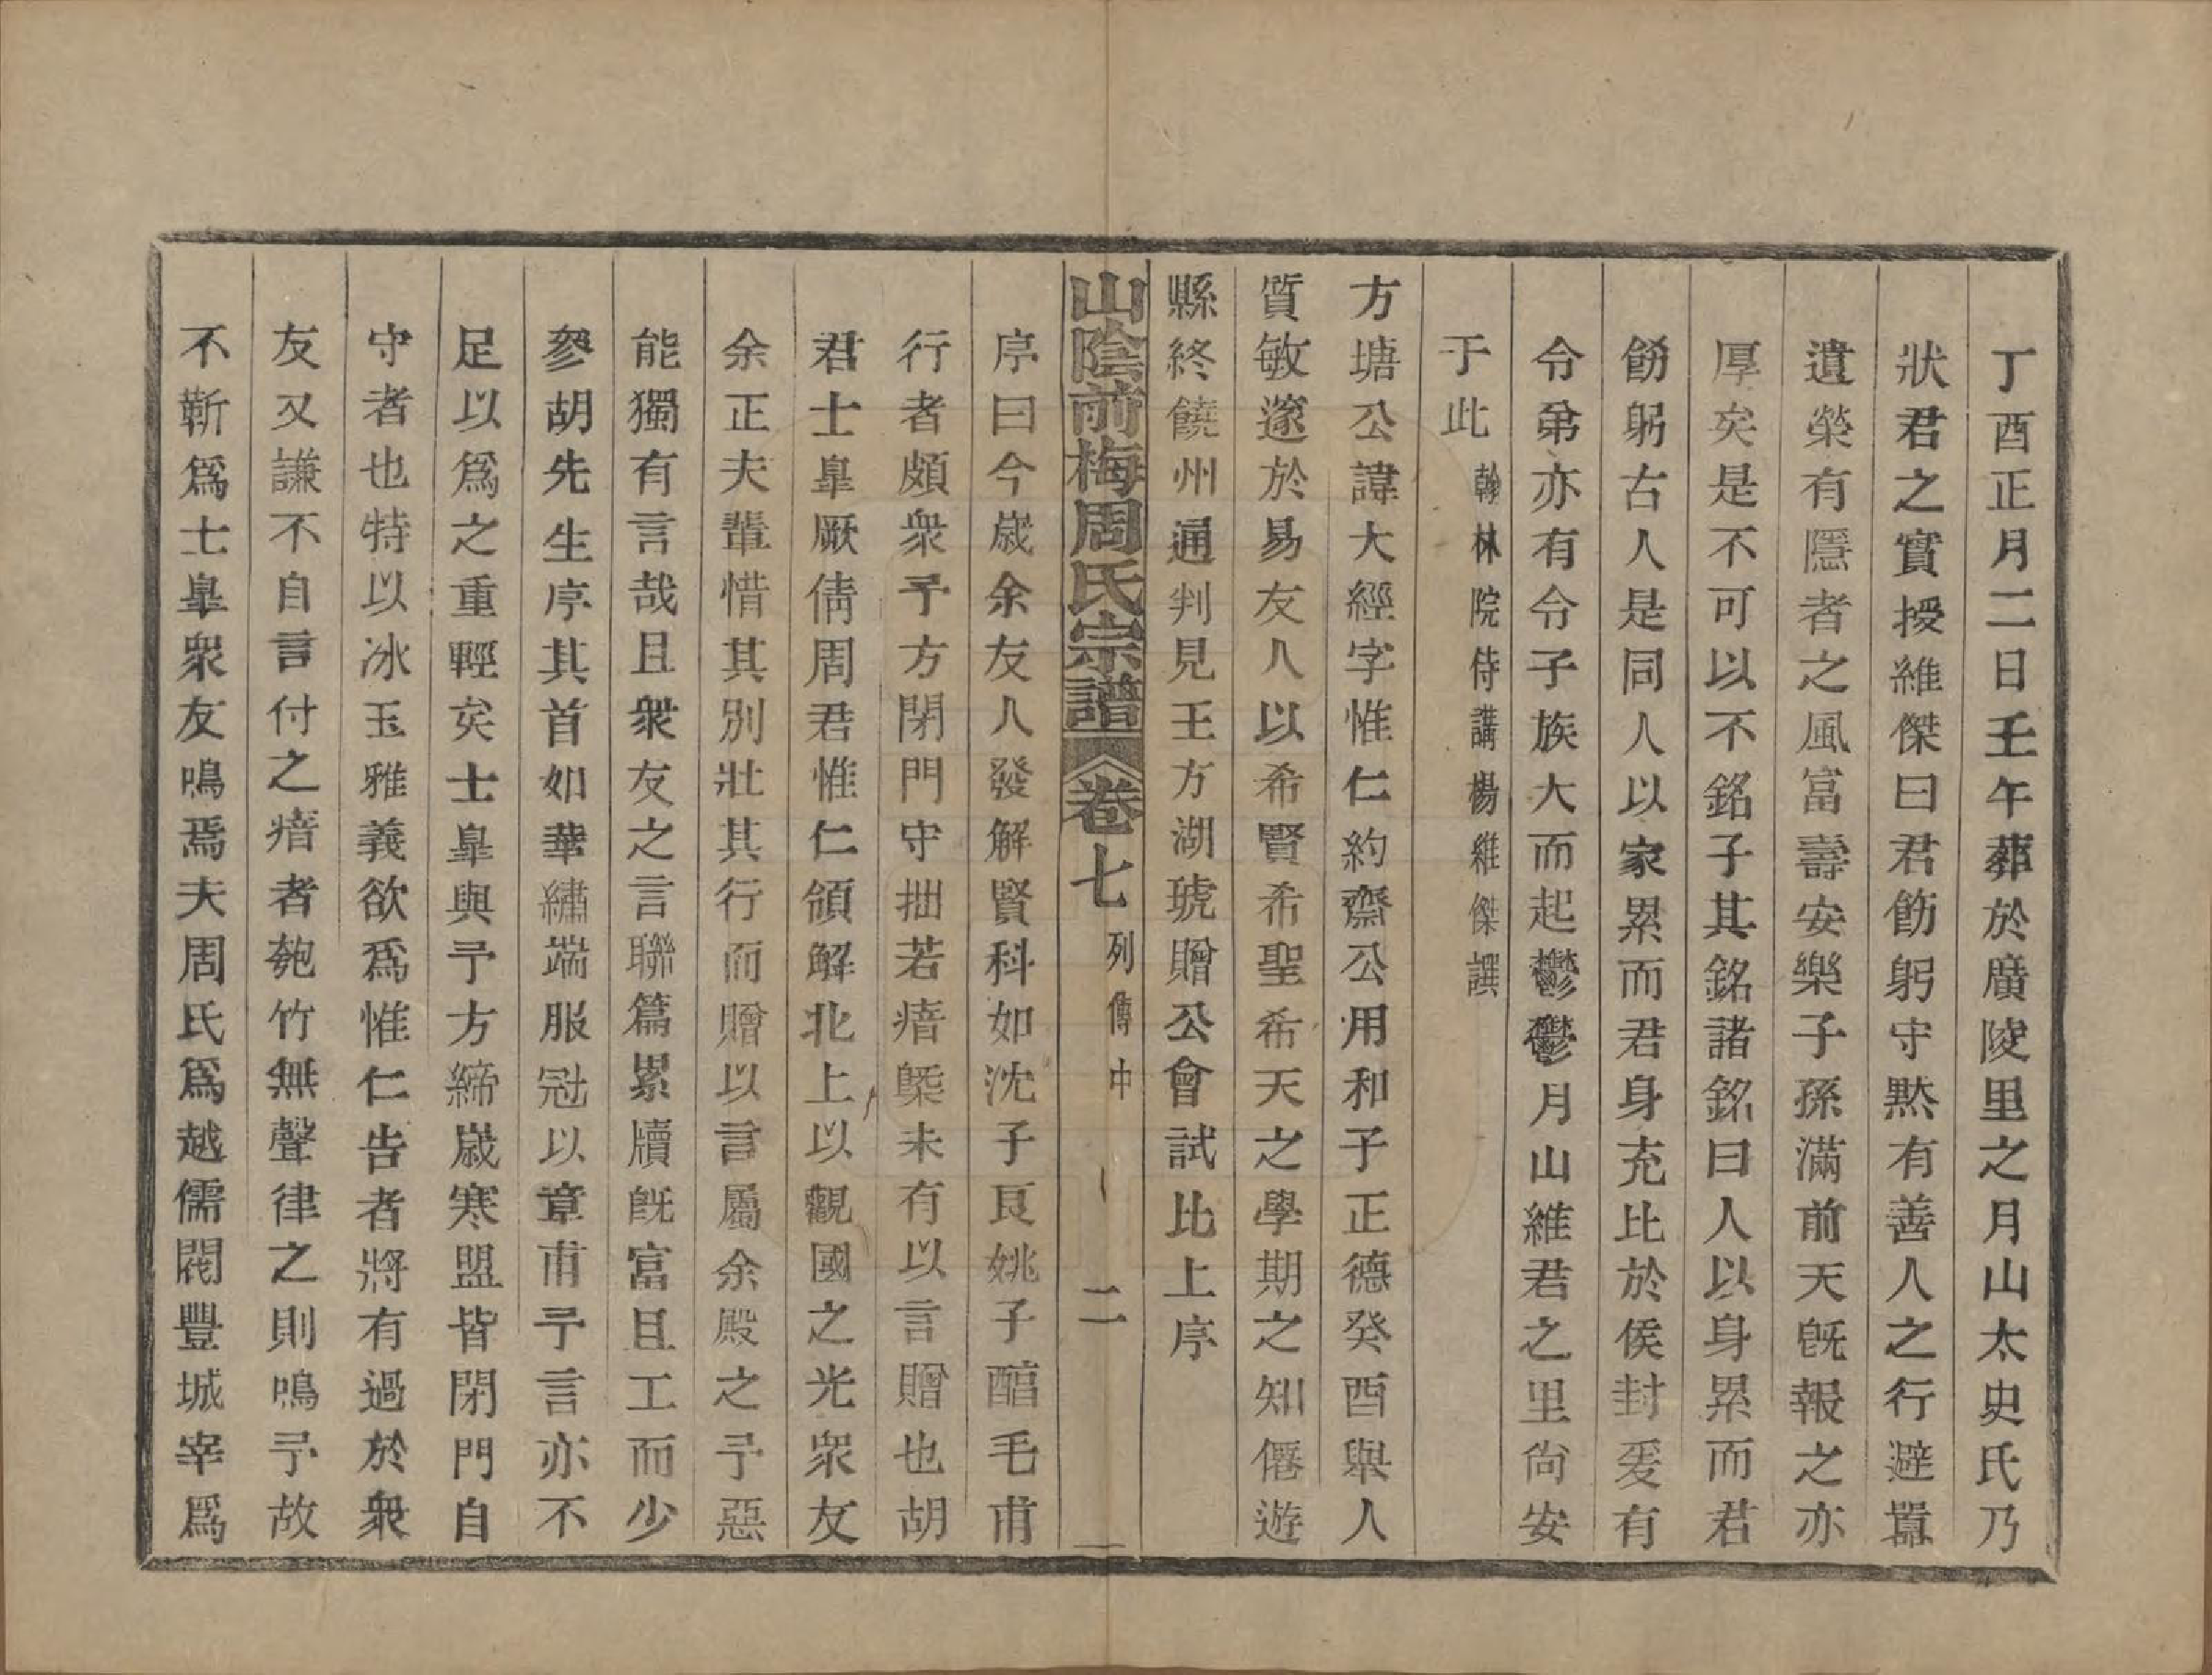 丁酉正月二日壬午葬於廣陵里之月山太史氏乃
狀君之實授維傑曰君飭躬守黙有善人之行避嚣
遺榮有隱者之風富壽安樂子孫滿前天旣報之亦
厚矣是不可以不銘子其銘諸銘曰人以身累而君
飭躬古人是同人以家累而君身充比於侯封爰有
令弟亦有令子族大而起鬱鬱月山維君之里尙安
于此翰林院侍講楊維傑譔
方塘公諱大經字惟仁約齋公用和子正德癸酉舉人
質敏邃於易友人以希賢希聖希天之學期之知僊遊
縣終饒州通判見王方湖琥贈公會試比上序
山陰前梅周氏宗譜 卷七 列傳中 二
序曰今歲余友人發解賢科如沈子良姚子醕毛甫
行者頗衆予方閉門守拙若瘖槩未有以言贈也胡
君士臯厥倩周君惟仁領解北上以觀國之光衆友
余正夫輩惜其別壯其行而贈以言屬余殿之予惡
能獨有言哉且衆友之言聯篇累牘旣富且工而少
參胡先生序其首如華繡端服冠以章甫予言亦不
足以爲之重輕矣士臯與予方締歲寒盟皆閉門自
守者也特以冰玉雅義欲爲惟仁告者將有過於衆
友又謙不自言付之瘖者匏竹無聲律之則鳴予故
不靳爲士臯衆友鳴焉夫周氏爲越儒閥豐城宰爲